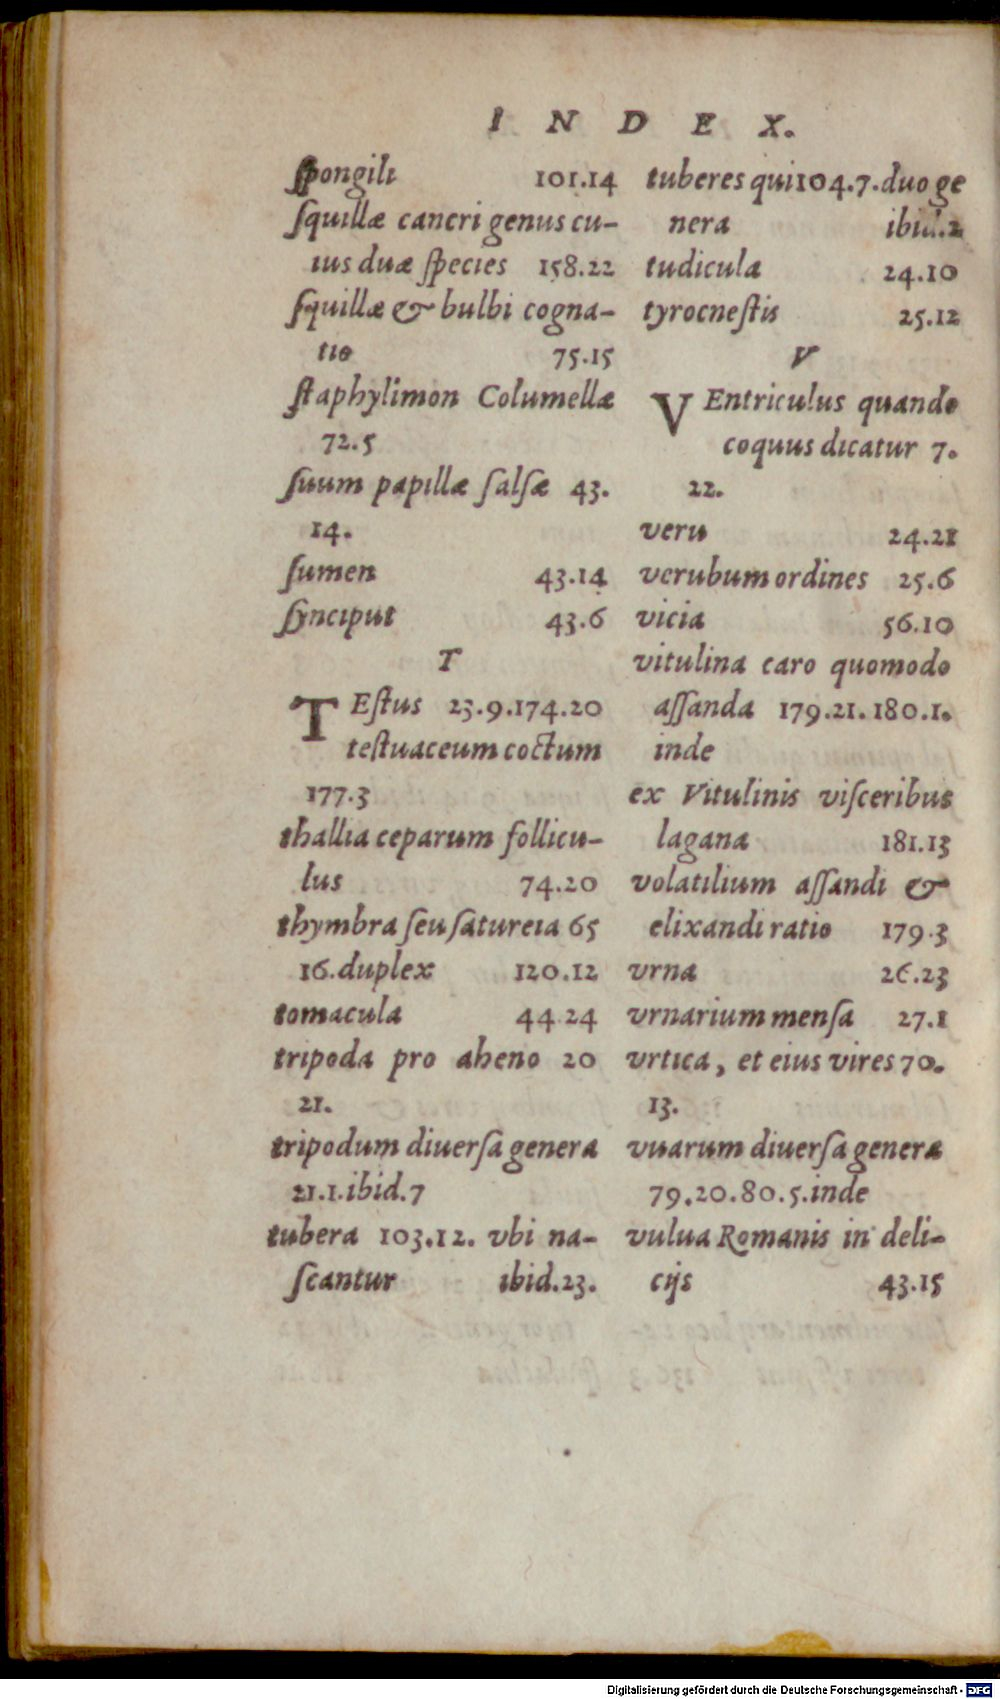 INDEX.
ſpongili 101.14
ſquillæ cancri genus cu-
ius duæ ſpecies 158.22
ſquillæ & bulbi cogna-
tio 75.15
ſtaphylimon Columellæ
72.5
ſuum papillæ ſalſæ 43.
14.
ſumen 43.14
ſynciput 43.6
T
TEſtus 23.9.174.20
teſtuaceum coctum
177.3
thallia ceparum follicu-
lus 74.20
thymbra ſeu ſatureia 65
16.duplex 120.12
tomacula 44.24
tripoda pro aheno 20
21.
tripodum diuerſa genera
21.1.ibid.7
tubera 103.12. vbi na-
ſcantur ibid.23.
tuberes qui 104.7.duo ge
nera ibid.2
tudicula 24.10
tyrocneſtis 25.12
V
VEntriculus quando
coquus dicatur 7.
22.
veru 24.21
verubum ordines 25.6
vicia 56.10
vitulina caro quomodo
aſſanda 179.21.180.1.
inde
ex Vitulinis viſceribus
lagana 181.13
volatilium aſſandi &
elixandi ratio 179.3
vrna 26.23
vrnarium menſa 27.1
vrtica, et eius vires 70.
13.
vuarum diuerſa genera
79.20.80.5.inde
vulua Romanis in deli-
cijs 43.15
Digitalisierung gefördert durch die Deutsche Forschungsgemeinschaft - DFG